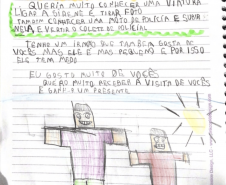 QUERIA MUITO CONHECER UMA VIATURA
LIGAR A SIRENE E TIRAR FOTO
TAMBÉM CONHECER UMA MOTO DE POLÍCIA E SUBIR
NELA E VESTIR O COLETE DE POLICIAL
TENHO UM IRMÃO ELE TAMBÉM GOSTA DE
VOCÊS MAS ELE É MAIS PEQUENO E POR ISSO
ELE TEM MEDO
EU GOSTO MUITO DE VOCÊS
QUERO MUITO RECEBER A VISITA DE VOCÊS
E GANHAR UM PRESENTE